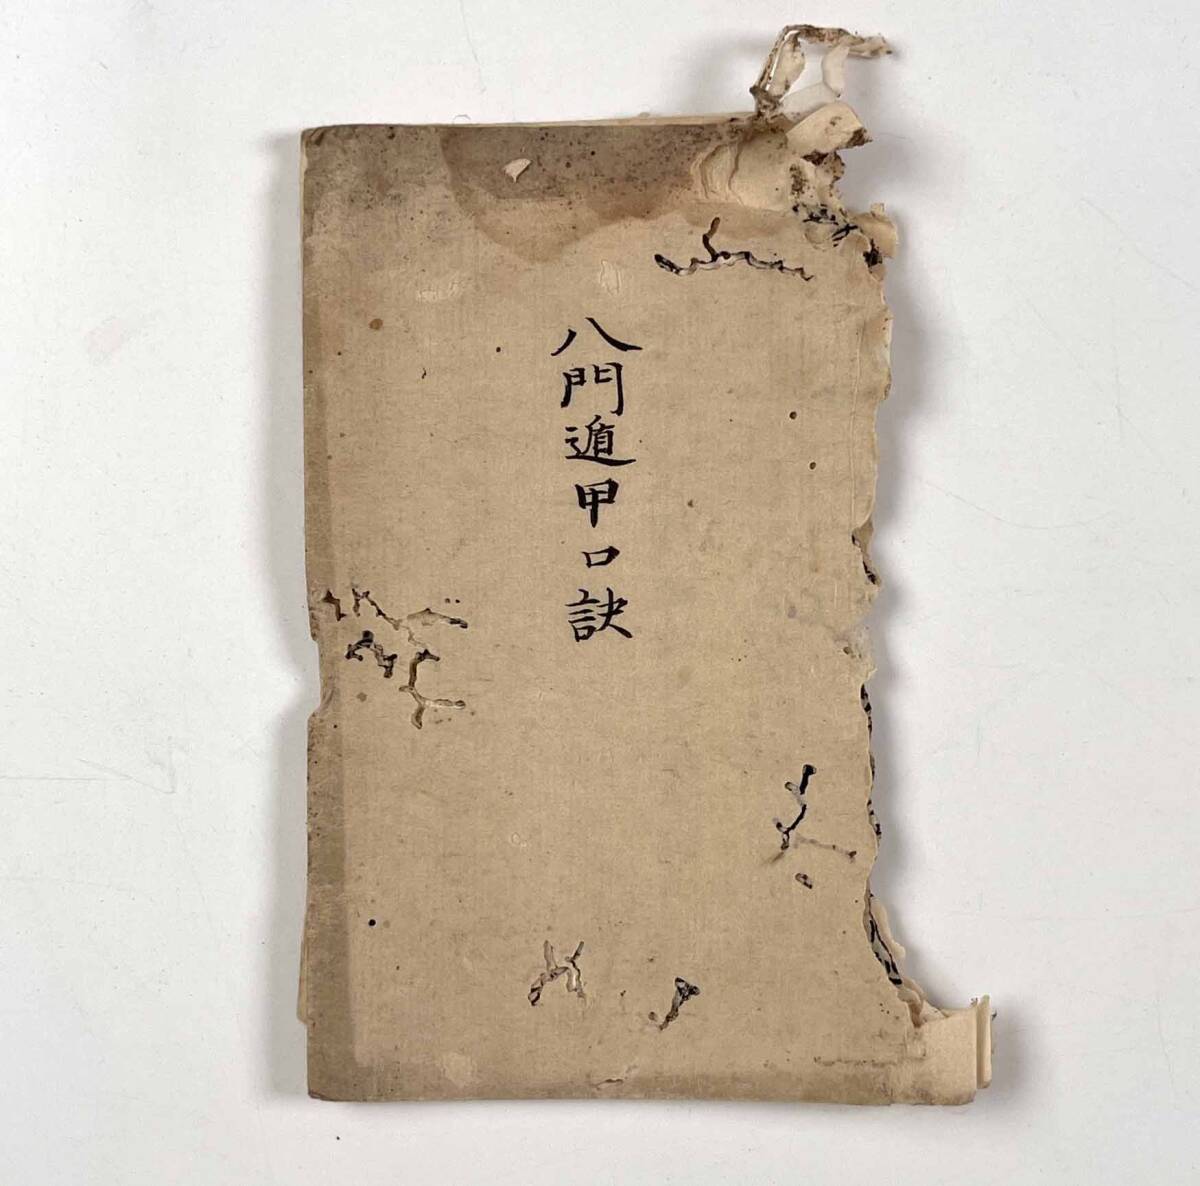 八門遁甲口訣